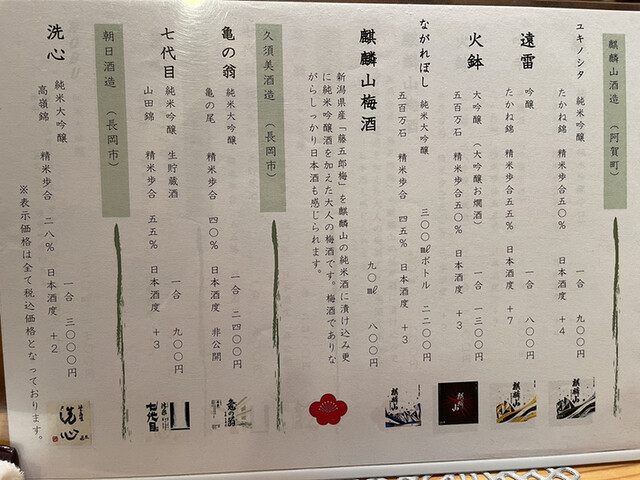 麒麟山酒造 （阿賀町）
ユキノシタ 純米吟醸
たかね錦 精米歩合五〇% 日本酒度 +4
一合 九〇〇円
遠雷 吟醸
たかね錦 精米歩合五五% 日本酒度 +7
一合 八〇〇円
火鉢 大吟醸 （大吟醸お燗酒）
五百万石 精米歩合五〇% 日本酒度 +3
一合 一三〇〇円
ながれぼし 純米大吟醸 三〇〇㎖ボトル 二二〇〇円
五百万石 精米歩合 四五% 日本酒度 +3
麒麟山梅酒 九〇㎖ 八〇〇円
新潟県産「藤五郎梅」を麒麟山の純米酒に漬け込み更
に純米吟醸酒を加えた大人の梅酒です。梅酒でありな
がらしっかり日本酒も感じられます。
久須美酒造 （長岡市）
亀の翁 純米大吟醸 一合 二四〇〇円
亀の尾 精米歩合 四〇% 日本酒度 非公開
七代目 純米吟醸 生貯蔵酒 一合 九〇〇円
山田錦 精米歩合 五五% 日本酒度 +3
朝日酒造 （長岡市）
洗心 純米大吟醸 一合 三〇〇〇円
高嶺錦 精米歩合 二八% 日本酒度 +2
※表示価格は全て税込価格となっております。
麒麟山
麒麟山
麒麟山
麒麟山
亀の翁
七代目
洗心